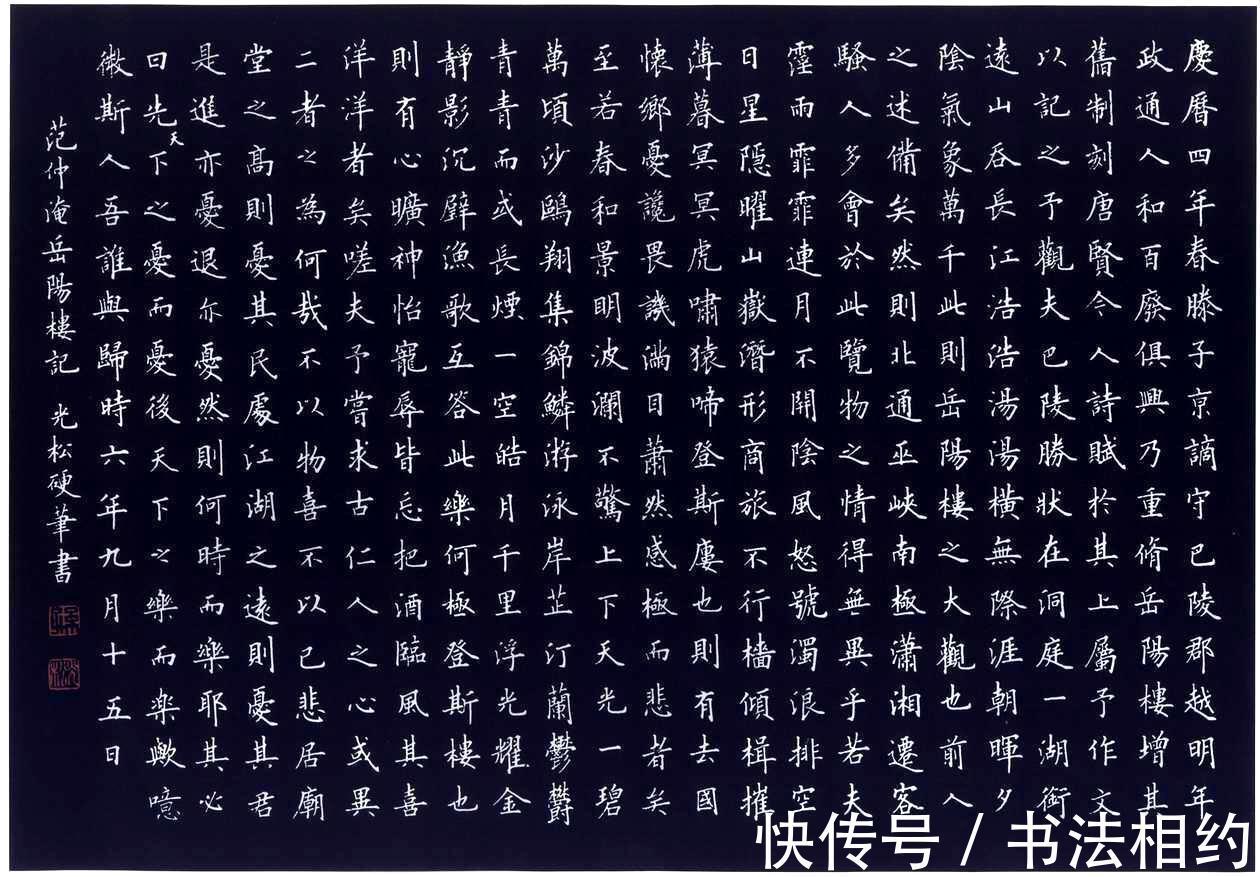 慶曆四年春滕子京謫守巴陵郡越明年
政通人和百廢俱興乃重脩岳陽樓增其
舊制刻唐賢今人詩賦於其上屬予作文
以記之予觀夫巴陵勝狀在洞庭一湖銜
遠山吞長江浩浩湯湯橫無際涯朝暉夕
陰氣象萬千此則岳陽樓之大觀也前人
之述備矣然則北通巫峽南極瀟湘遷客
騷人多會於此覽物之情得無異乎若夫
霪雨霏霏連月不開陰風怒號濁浪排空
日星隱曜山嶽潛形商旅不行檣傾楫摧
薄暮冥冥虎嘯猿啼登斯廔也則有去國
懷鄉憂讒畏譏滿目蕭然感極而悲者矣
至若春和景明波瀾不驚上下天光一碧
萬頃沙鷗翔集錦鱗游泳岸芷汀蘭鬱欝
青青而或長煙一空皓月千里浮光耀金
靜影沉璧漁歌互答此樂何極登斯樓也
則有心曠神怡寵辱皆忘把酒臨風其喜
洋洋者矣嗟夫予嘗求古仁人之心或異
二者之為何哉不以物喜不以己悲居廟
堂之高則憂其民處江湖之遠則憂其君
是進亦憂退亦憂然則何時而樂耶其必
曰先天下之憂而憂後天下之樂而楽歟噫
微斯人吾誰與歸時六年九月十五日
范仲淹岳陽樓記 光松硬筆書
快传号 / 书法相约